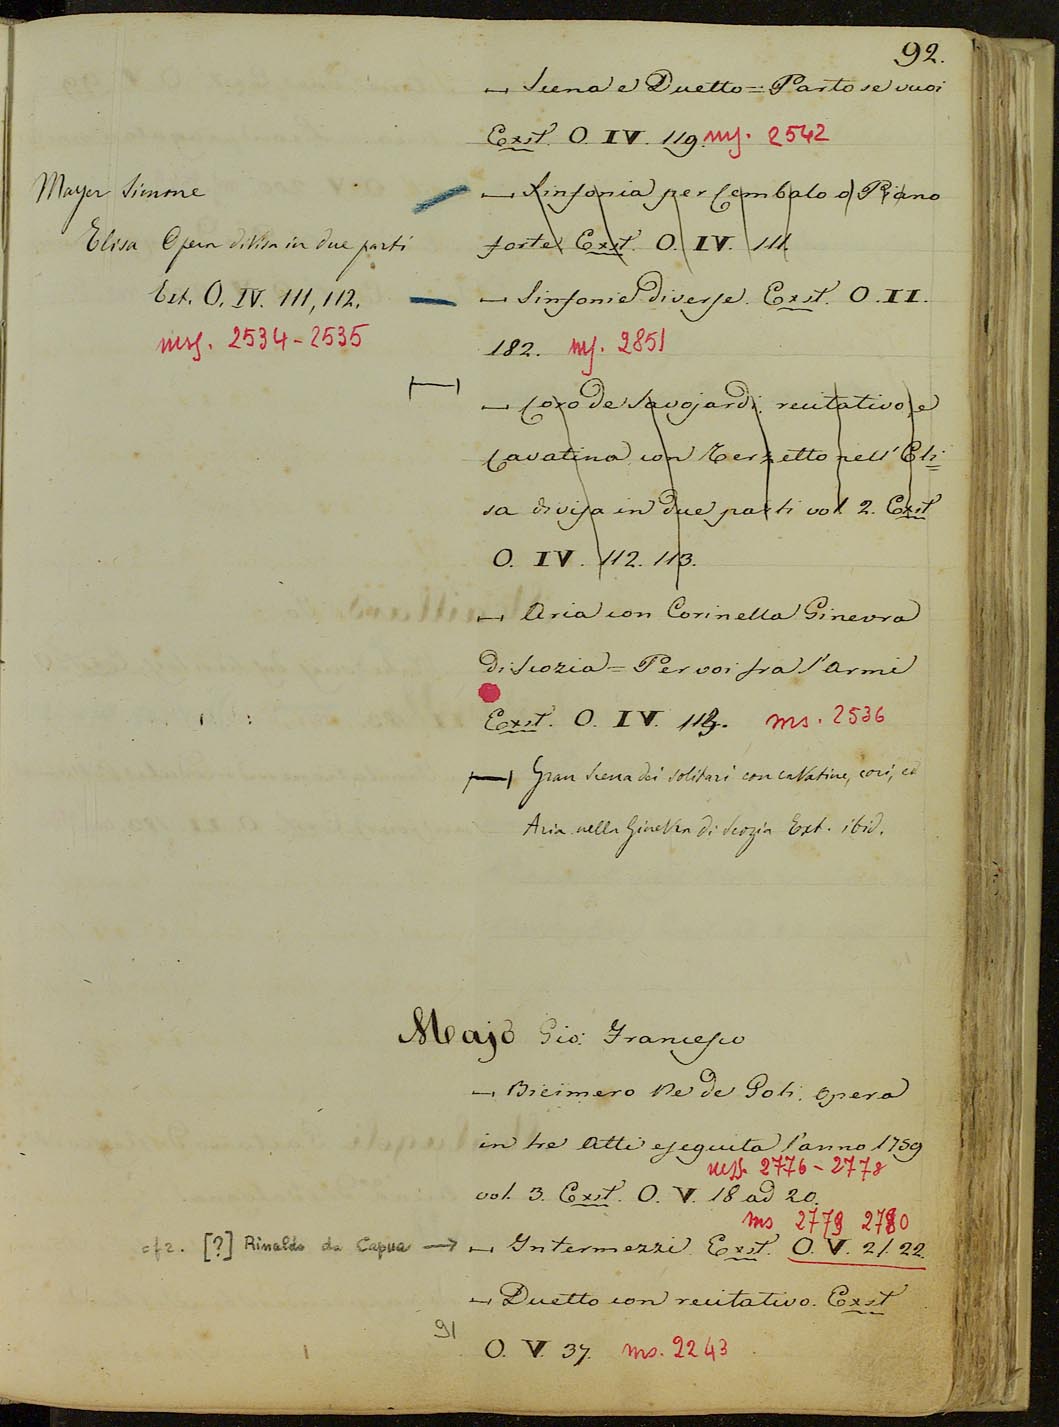 92.
⊢ Scena e Duetto = Parto se vuoi
Exst. O. IV. 119. ms. 2542
Mayer Simone
⊢ Sinfonia per Cembalo o Piano
Elisa Opera divisa in due parti
forte Exst. O. IV. 111.
Ext. O. IV. 111, 112.
⊢ Sinfonie diverse. Exst. O. II.
mss. 2534-2535
182. ms. 2851
⊢ Coro de Savojardi, recitativo, e
Cavatina con Terzetto nell' Eli=
sa divisa in due parti vol. 2. Exst
O. IV. 112. 113.
⊢ Aria con Corinella Ginevra
di Scozia = Per voi fra l'armi
Exst. O. IV. 113. ms. 2536
⊢ Gran Scena dei Solitari con cavatine, cori, ed
Aria nella Ginevra di Scozia Ext. ibid.
Majo Gio: Francesco
⊢ Ricimero Re de Goti. Opera
in tre Atti eseguita l'anno 1759
mss. 2776-2778
vol. 3. Exst. O. V. 18 ad 20.
ms 2779 2780
cfr. [?] Rinaldo da Capua → ⊢ Intermezzi Exst. O. V. 21 22.
⊢ Duetto con recitativo. Exst
91
O. V. 37. ms. 2243